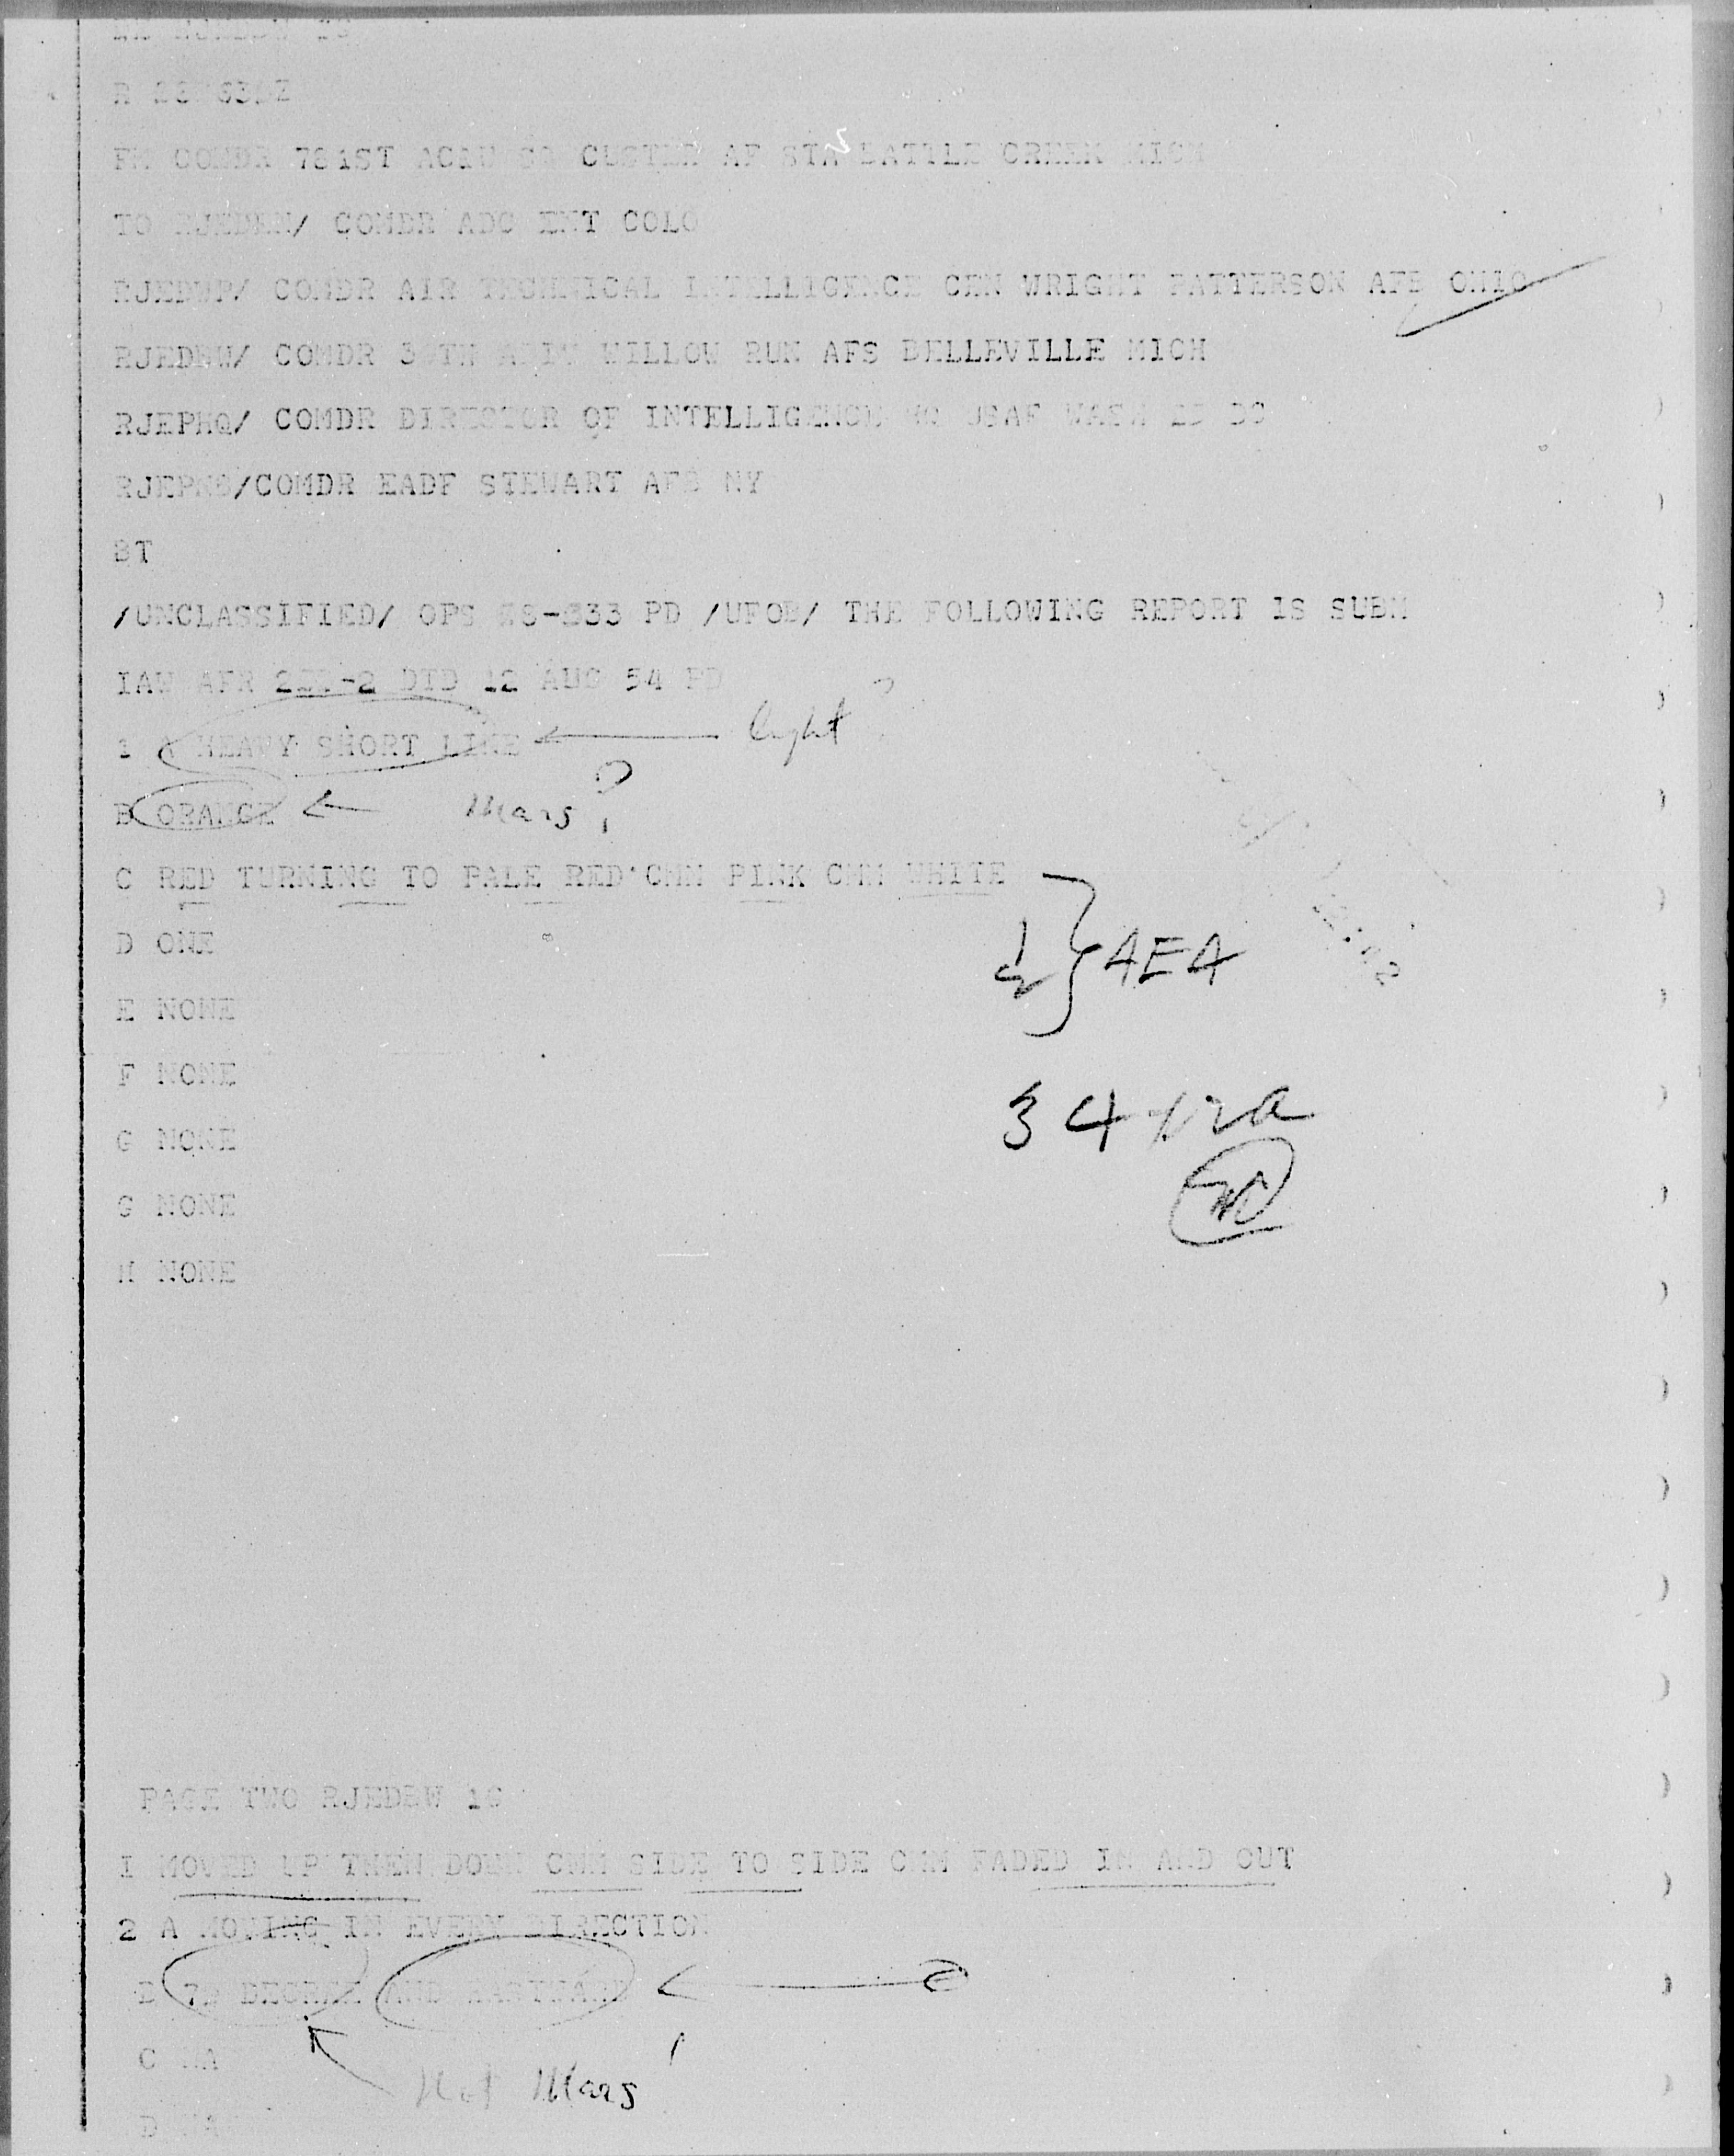 FM COMDR 781ST AC&W SQ CUSTER AF STA BATTLE CREEK MICH
TO RJEDEN/ COMDR ADC ENT COLO
RJEDWP/ COMDR AIR TECHNICAL INTELLIGENCE CEN WRIGHT PATTERSON AFB OHIO
COMDR WILLOW RUN AFS BELLEVILLE MICH
RJEPHQ/ COMDR DIRECTOR OF INTELLIGENCE HQ USAF WASH DC
COMDR EADF STEWART AFB NY
BT
/UNCLASSIFIED/ OPS PD /UFOB/ THE FOLLOWING REPORT IS SUBM
IAW AFR -2 DTD 12 AUG 54 PD
1 A HEAVY SHORT LINE light ?
B ORANGE Mars?
C RED TURNING TO PALE RED CMM PINK CMM WHITE
D ONE
AEA
E NONE
F NONE
3 4
G NONE
G NONE
H NONE
PAGE TWO RJEDBW
I MOVED UP THEN DOWN CMM SIDE TO SIDE CMM FADED IN AND OUT
2 A MOVING IN EVERY DIRECTION
B DEGREE AND EASTWARD
C NA
Not Mars!
D NA